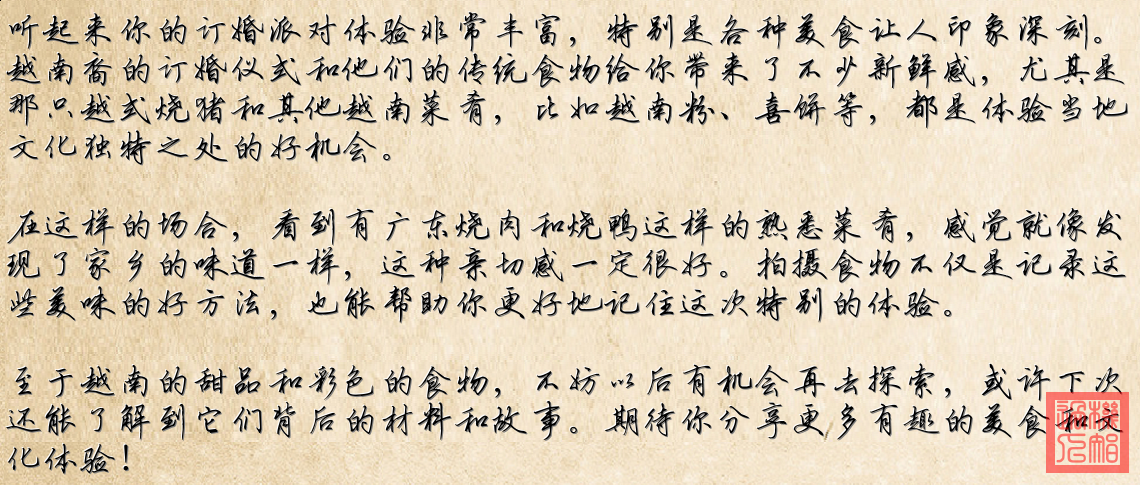 听起来你的订婚派对体验非常丰富，特别是各种美食让人印象深刻。
越南裔的订婚仪式和他们的传统食物给你带来了不少新鲜感，尤其是
那只越式烧猪和其他越南菜肴，比如越南粉、喜饼等，都是体验当地
文化独特之处的好机会。
在这样的场合，看到有广东烧肉和烧鸭这样的熟悉菜肴，感觉就像发
现了家乡的味道一样，这种亲切感一定很好。拍摄食物不仅是记录这
些美味的好方法，也能帮助你更好地记住这次特别的体验。
至于越南的甜品和彩色的食物，不妨以后有机会再去探索，或许下次
还能了解到它们背后的材料和故事。期待你分享更多有趣的美食和文
化体验！